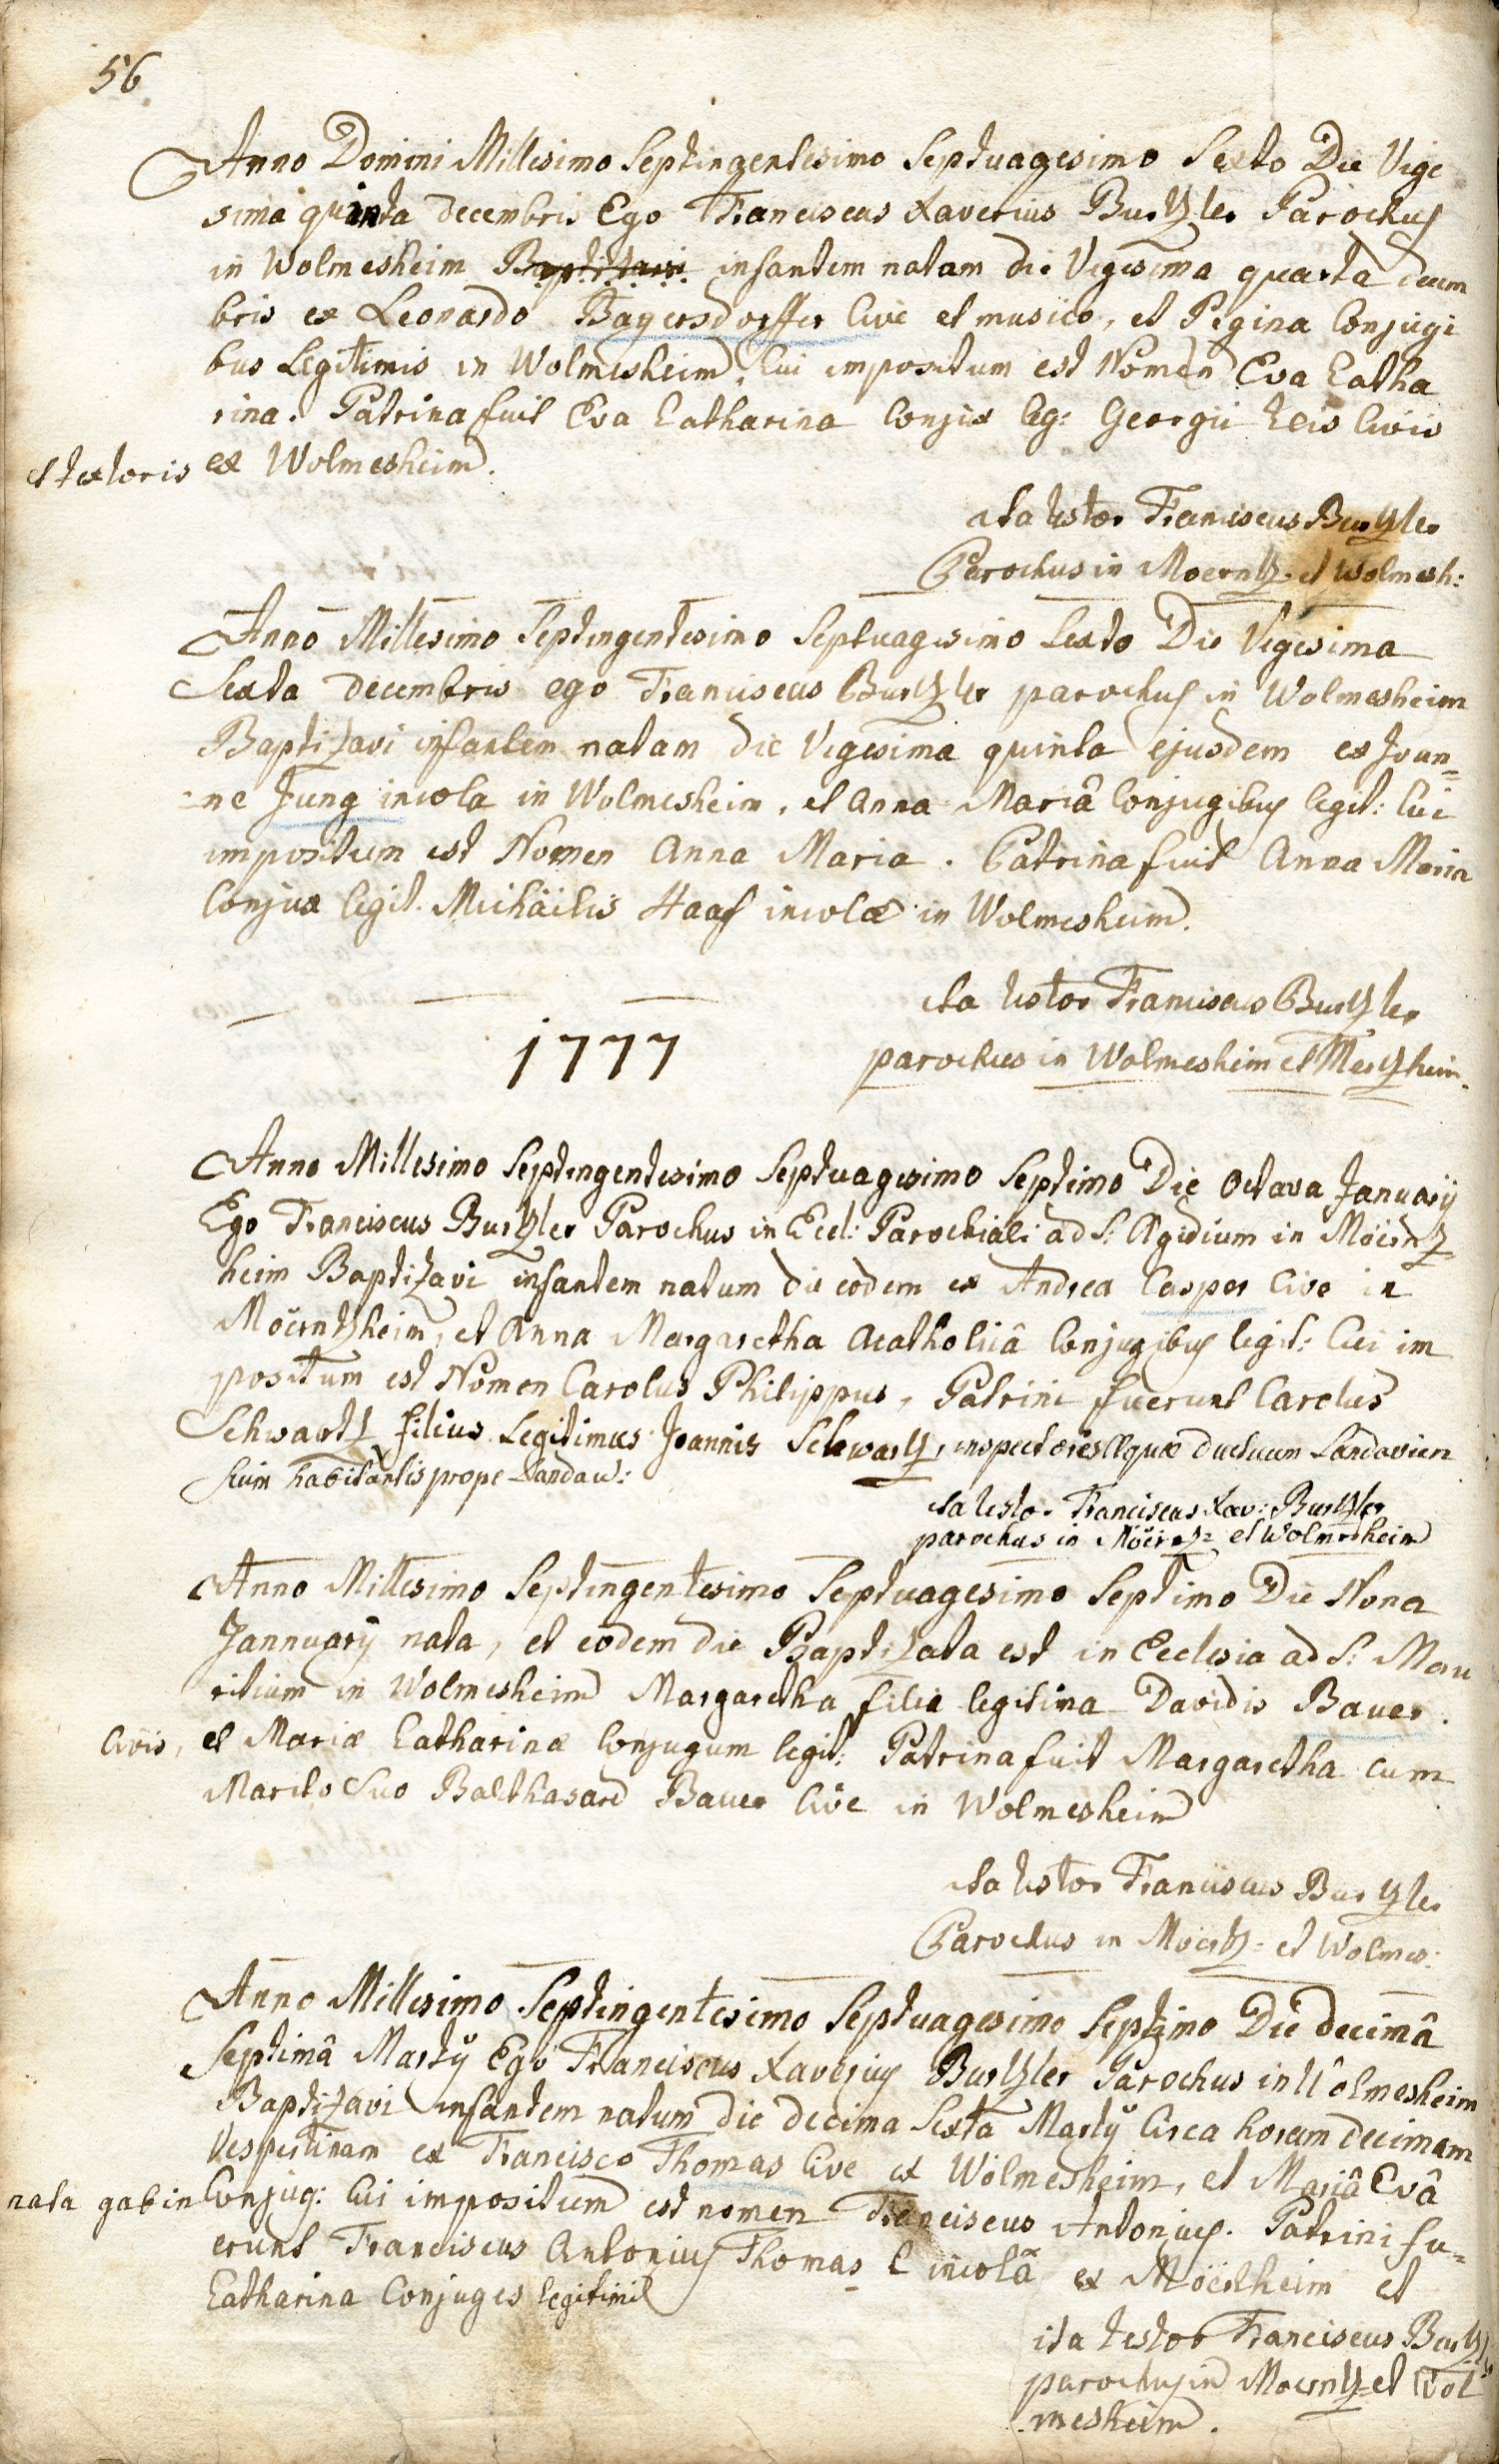 56
Anno Domini Millesimo Septingentesimo Septuagesimo Sexto Die Vige
sima quinta decembris Ego Franciscus Xaverius Burtzler Parochus
in Wolmesheim Baptizavi infantem natam die Vigesima quarta decem
bris ex Leonardo Bayersdorffer Cive et musico, et Regina Conjugi
bus Legitimis in Wolmesheim, Cui impositum est Nomen Eva Catha
rina. Patrina fuit Eva Catharina Conjux leg: Georgii Leis Civis
et textoris ex Wolmesheim.
ita testor Franciscus Burtzler
Parochus in Moerntz- et Wolmesh:
Anno Millesimo Septingentesimo Septuagesimo Sexto Die Vigesima
Sexta decembris ego Franciscus Burtzler parochus in Wolmesheim
Baptizavi infantem natam die Vigesima quinta ejusdem ex Joan=
=ne Jung incola in Wolmesheim, et Anna Mariâ Conjugibus legit: Cui
impositum est Nomen Anna Maria. Patrina fuit Anna Maria
Conjux legit. Michäelis Haaf incolæ in Wolmesheim.
ita testor Franciscus Burtzler
parochus in Wolmesheim et Mertzheim.
1777
Anno Millesimo Septingentesimo Septuagesimo Septimo Die Octava Januarÿ
Ego Franciscus Burtzler Parochus in Eccl: Parochiali ad S: Ægidium in Möerntz
heim Baptizavi infantem natum die eodem ex Andrea Casper Cive in
Möerntzheim, et Anna Margaretha Acatholicâ Conjugibus legit: Cui im
positum est Nomen Carolus Philippus, Patrini fuerunt Carolus
Schwartz filius Legitimus Joannis Schwartz, inspectoris Aquæ ductuum Landavien
sium habitantis prope Landau:
ita testor Franciscus Xav: Burtzler
parochus in Möerntz= et Wolmesheim
Anno Millesimo Septingentesimo Septuagesimo Septimo Die Nona
Jannuarÿ nata, et eodem die Baptizata est in Ecclesia ad S: Mau
ritium in Wolmesheim Margaretha filia legitima Davidis Bauer.
Civis, et Mariæ Catharinæ Conjugum legit: Patrina fuit Margaretha cum
Marito Suo Balthasare Bauer Cive in Wolmesheim
ita testor Franciscus Burtzler
Parochus in Moertz= et Wolmes:
Anno Millesimo Septingentesimo Septuagesimo Septimo Die decimâ
Septimâ Martÿ Ego Franciscus Xaverius Burtzler Parochus in Wolmesheim
Baptizavi infantem natum die decima Sexta Martÿ Circa horam decimam
Vespertinam ex Francisco Thomas Cive ex Wolmesheim, et Mariâ Evâ
nata gabin Conjug: Cui impositum est nomen Franciscus Antonius. Patrini fu=
erunt Franciscus Antonius Thomas incolâ ex Möerlheim et
Catharina Conjuges legitimi
ita testor Franciscus Burtzler
parochus in Moerntz= et Wol
mesheim.